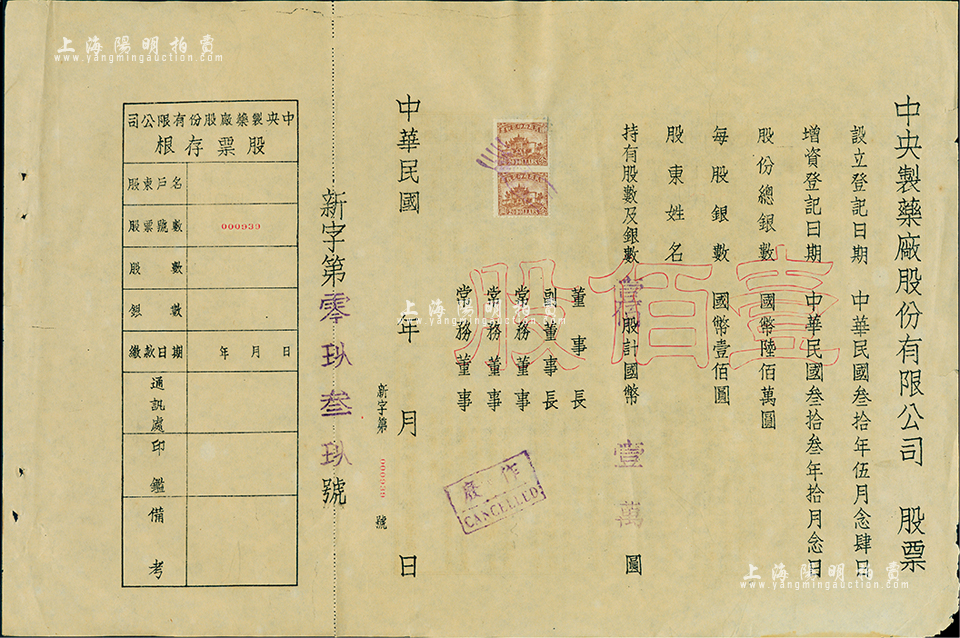 上海陽明拍賣
www.yangmingauction.com
中央製藥廠股份有限公司 股票
設立登記日期 中華民國叁拾年伍月念肆日
增資登記日期 中華民國叁拾叁年拾月念日
股份總銀數 國幣陸佰萬圓
每股銀數 國幣壹佰圓
股東姓名
持有股數及銀數壹佰股計國幣 壹萬圓
壹佰股
董事長
副董事長
常務董事
常務董事
常務董事
作廢
CANCELLED
中華民國 年 月 日
新字第 000939 號
新字第零玖叁玖號
中央製藥廠股份有限公司
股票存根
股東戶名
股票號數 000939
股數
銀數
繳款日期 年 月 日
通訊處
印鑑
備考
上海陽明拍賣
www.yangmingauction.com
上海陽明拍賣
www.yangmingauction.com